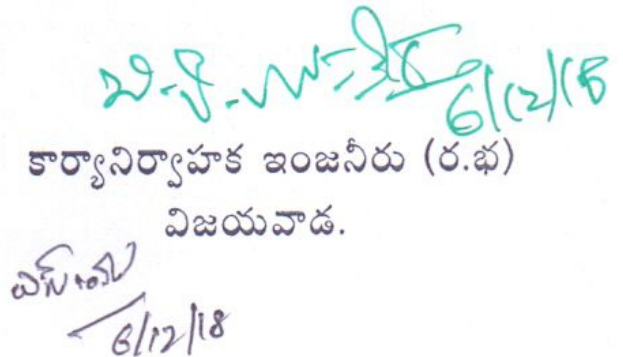 6/12/18
కార్యానిర్వాహక ఇంజనీరు (ర.భ)
విజయవాడ.
6/12/18